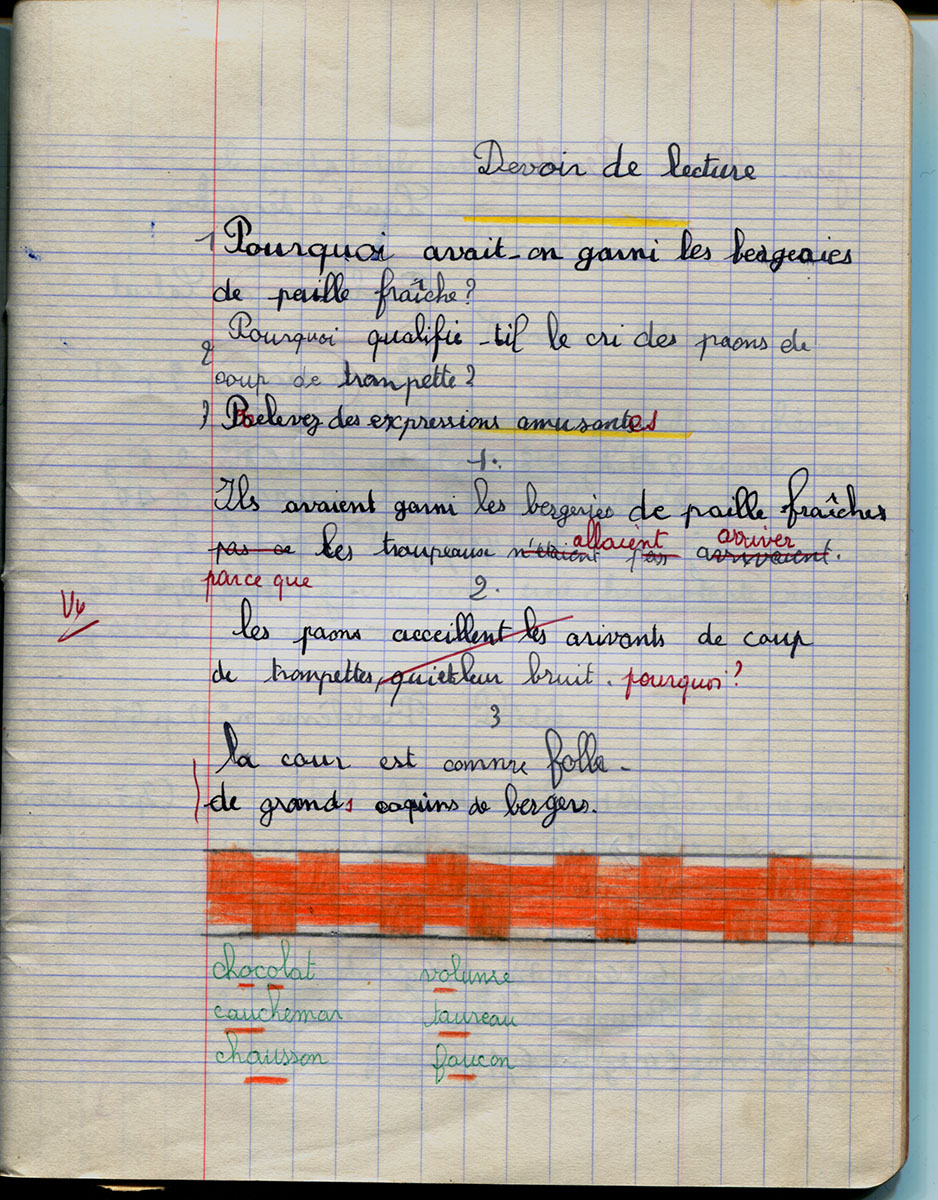 Devoir de lecture
1 Pourquoi avait-on garni les bergeries
de paille fraîche?
2 Pourquoi qualifie-til le cri des paons de
coup de trompette?
3 Relevez des expressions amusantes
1.
Ils avaient garni les bergeries de paille fraîches
allaient arriver
pas ce les troupeause n'étaient pas arrivaient.
parce que
2.
Vu
les paons acceillent les arivants de coup
de trompettes, leur bruit. pourquoi?
3
la cour est comme folle.
de grands coquins de bergers.
chocolat volume
cauchemar taureau
chausson faucon